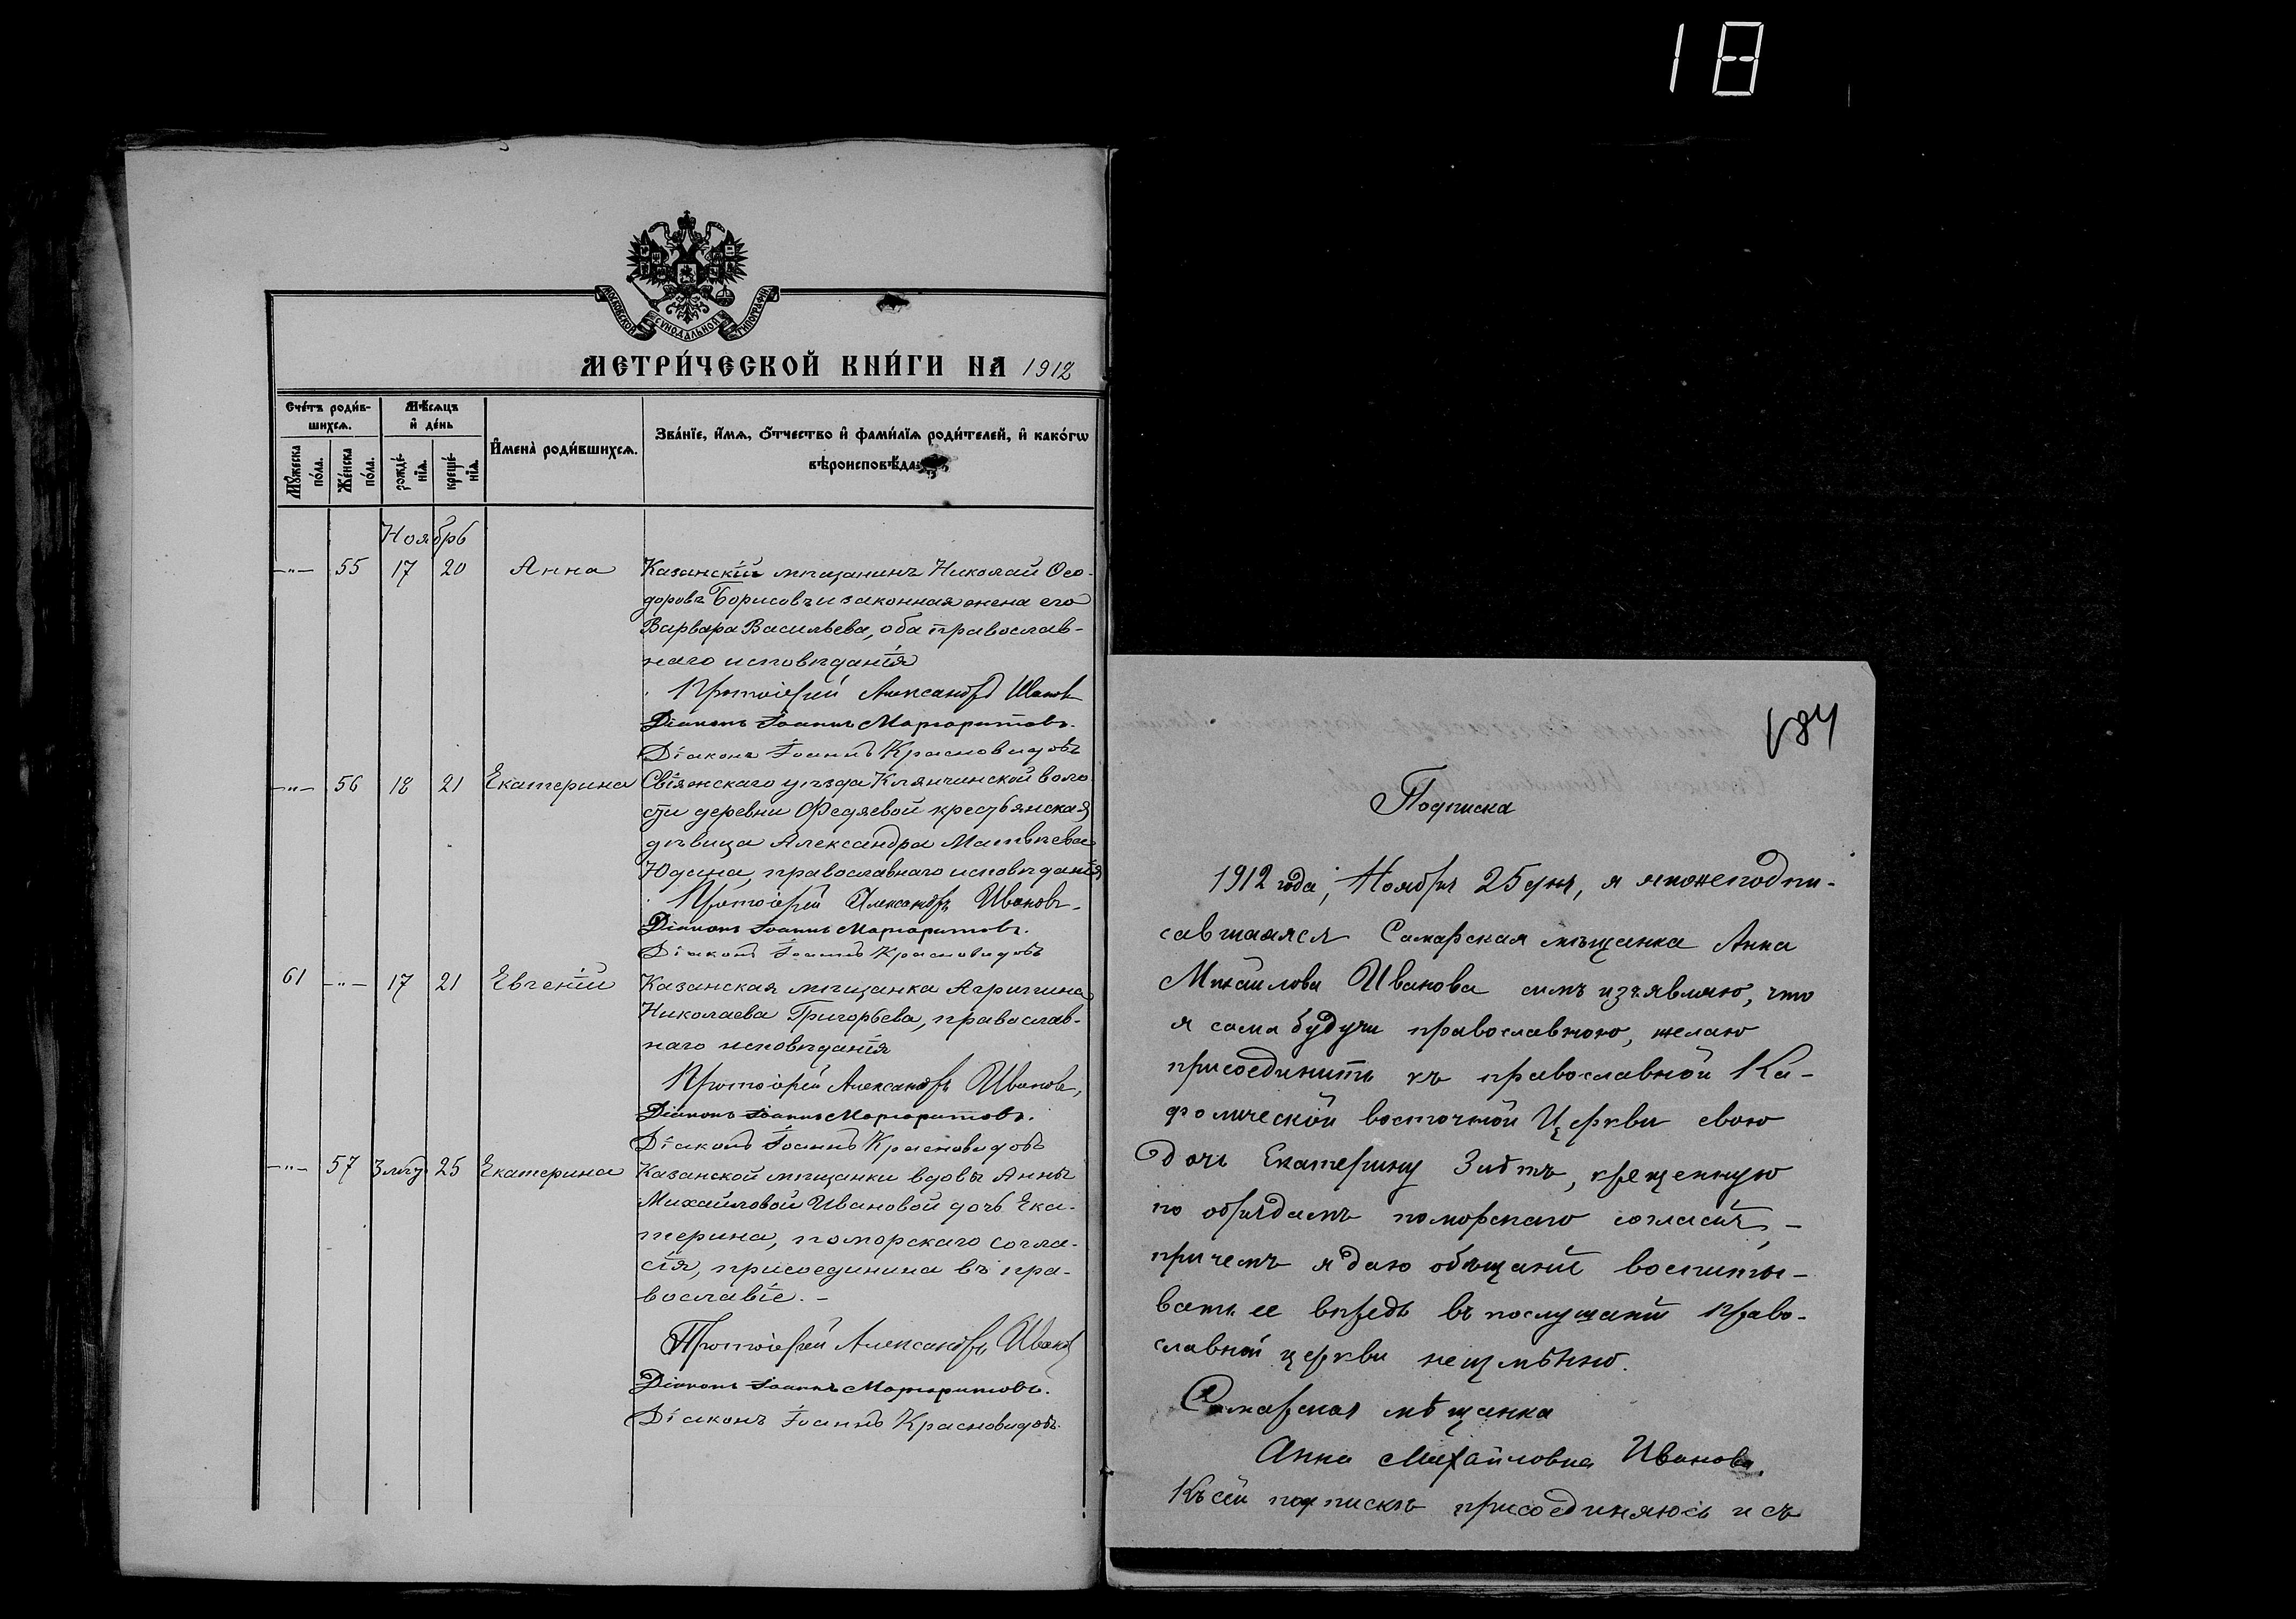 18
МОСКОВСКОЙ СѴНОДАЛЬНОЙ ТИПОГРАФІИ
МЕТРИ́ЧЕСКОЙ КНИ́ГИ НА 1912
Сче́тъ роди́вшихсѧ.
Мꙋ́жеска по́ла.
Же́нска по́ла.
Мѣ́сѧцъ и҆ де́нь
рожде́нїѧ.
креще́нїѧ.
И҆мена̀ роди́вшихсѧ.
Зва́нїе, и҆́мѧ, ѻ҆́тчество и҆ фами́лїѧ роди́телей, и҆ како́гѡ
вѣроисповѣ́да
Ноябрь
-"- 55 17 20 Анна Казанскій мѣщанинъ Николай Ѳео-
доровъ Борисовъ и законная жена его
Варвара Васильева, оба православ-
наго исповѣданія
Протоіерей Александръ Ивановъ
Діаконъ Іоаннъ Маргаритовъ.
Діаконъ Іоаннъ Красновидовъ
-"- 56 18 21 Екатерина Свіяжскаго уѣзда Клянчинской воло-
сти деревни Федяевой крестьянская
дѣвица Александра Матвѣева
Юдина, православнаго исповѣданія
Протоіерей Александръ Ивановъ
Діаконъ Іоаннъ Маргаритовъ.
Діаконъ Іоаннъ Красновидовъ
61 -"- 17 21 Евгеній Казанская мѣщанка Агрипина
Николаева Григорьева, православ-
наго исповѣданія
Протоіерей Александръ Ивановъ,
Діаконъ Іоаннъ Маргаритовъ.
Діаконъ Іоаннъ Красновидовъ
-"- 57 25 Екатерина Казанской мѣщанки вдовы Анны
Михайловой Ивановой дочь Ека-
терина, поморскаго согла-
сія, присоединена въ пра-
вославіе. -
Протоіерей Александръ Ивановъ
Діаконъ Іоаннъ Маргаритовъ.
Діаконъ Іоаннъ Красновидовъ.
Подписка
1912 года, Ноября 25 дня, я нижеподпи-
савшаяся Самарская мѣщанка Анна
Михайлова Иванова симъ изъявляю, что
я сама будучи православною, желаю
присоединить къ православной Ка-
фолической восточной Церкви свою
дочь Екатерину 3 лѣтъ, крещенную
по обрядамъ поморскаго согласія, -
причемъ я даю обѣщаніе воспиты-
вать ее впредь въ послушаніи право-
славной церкви неизмѣнно.
Самарская мѣщанка
Анна Михайловна Иванова.
Къ сей подпискѣ присоединяюсь и съ